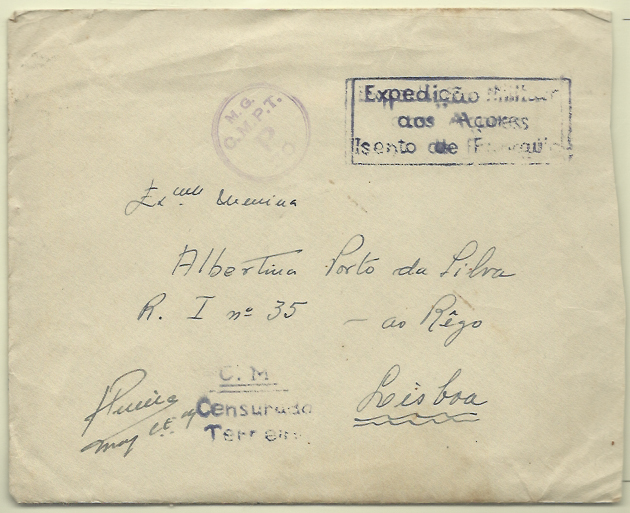 M.G.
C.M.P.T.
Expedição Militar
aos Açores
Isento de Franquia
Exᵐᵃ Menina
Albertina Porto da Silva
R. I nº 35 – ao Rêgo
Lisboa
C. M.
Censurado
Terceira